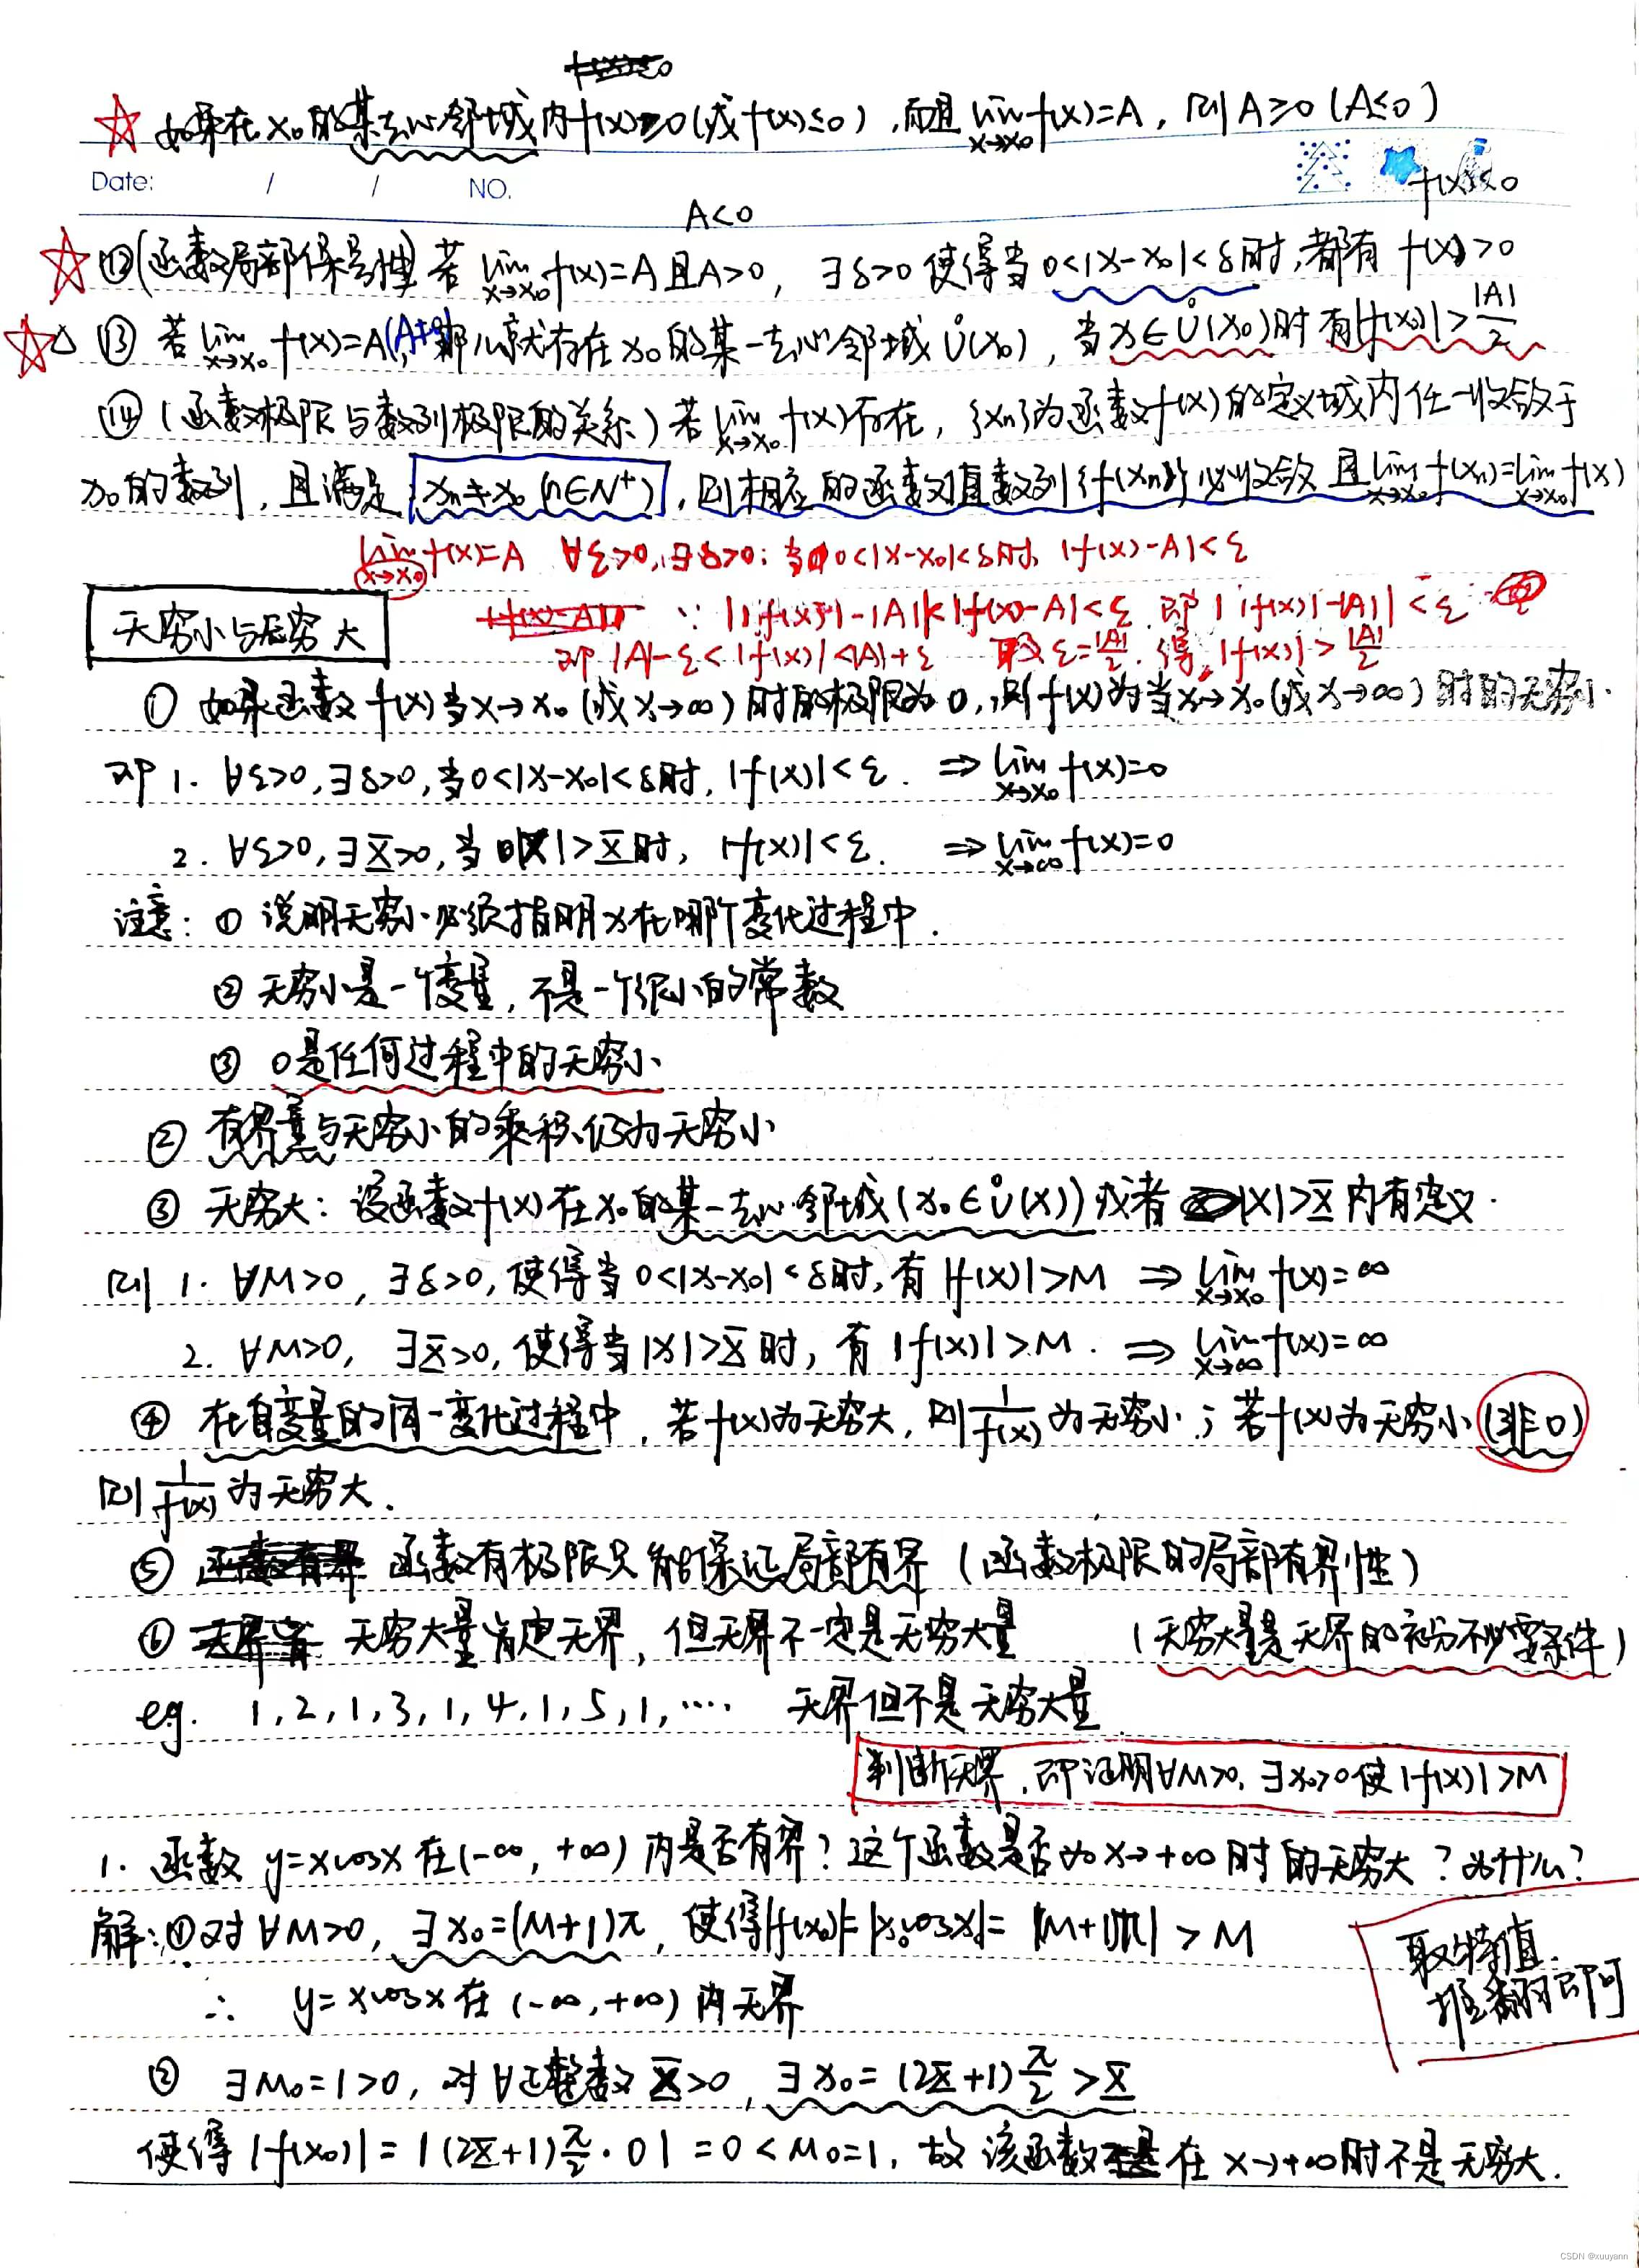 ☆ 如果在x₀的某去心邻域内f(x)≥0(或f(x)≤0),而且lim_{x→x₀}f(x)=A,则A≥0(A≤0)
Date: / / NO.
A<0 f(x)<0
☆ ⑫(函数局部保号性)若lim_{x→x₀}f(x)=A且A>0, ∃δ>0使得当0<|x-x₀|<δ时,都有f(x)>0
☆△ ⑬ 若lim_{x→x₀}f(x)=A(A≠0),那么就存在x₀的某一去心邻域Ů(x₀),当x∈Ů(x₀)时有|f(x)|>|A|/2
⑭(函数极限与数列极限的关系)若lim_{x→x₀}f(x)存在,{xn}为函数f(x)的定义域内任一收敛于
x₀的数列,且满足:xn≠x₀(n∈N⁺),则相应的函数值数列{f(xn)}必收敛且lim_{x→x₀}f(xn)=lim_{x→x₀}f(x)
lim_{x→x₀}f(x)=A ∀ε>0,∃δ>0;当0<|x-x₀|<δ时, |f(x)-A|<ε
∵ ||f(x)|-|A||<|f(x)-A|<ε 即||f(x)|-|A||<ε
无穷小与无穷大
即|A|-ε<|f(x)|<|A|+ε 取ε=|A|/2.得,|f(x)|>|A|/2
① 如果函数f(x)当x→x₀(或x→∞)时的极限为0,则f(x)为当x→x₀(或x→∞)时的无穷小.
即 1. ∀ε>0,∃δ>0,当0<|x-x₀|<δ时,|f(x)|<ε. ⇒lim_{x→x₀}f(x)=0
2. ∀ε>0,∃X>0,当|x|>X时, |f(x)|<ε. ⇒lim_{x→∞}f(x)=0
注意: ① 说明无穷小必须指明x在哪个变化过程中.
② 无穷小是一个变量,不是一个很小的常数
③ 0是任何过程中的无穷小
② 有界量与无穷小的乘积仍为无穷小
③ 无穷大: 设函数f(x)在x₀的某一去心邻域(x₀∈Ů(x))或者|x|>X内有定义.
则 1. ∀M>0, ∃δ>0,使得当0<|x-x₀|<δ时,有|f(x)|>M ⇒ lim_{x→x₀}f(x)=∞
2. ∀M>0, ∃X>0,使得当|x|>X时,有|f(x)|>M. ⇒ lim_{x→∞}f(x)=∞
④ 在自变量的同一变化过程中,若f(x)为无穷大,则1/f(x)为无穷小;若f(x)为无穷小(非0)
则1/f(x)为无穷大.
⑤ 函数有极限只能保证局部有界(函数极限的局部有界性)
⑥ 无穷大量肯定无界,但无界不一定是无穷大量 (无穷大量是无界的充分不必要条件)
eg. 1,2,1,3,1,4,1,5,1,···· 无界但不是无穷大量
判断无界,即证明∀M>0,∃x₀>0使|f(x)|>M
1. 函数y=xcosx在(-∞,+∞)内是否有界?这个函数是否为x→+∞时的无穷大?为什么?
解:①对∀M>0, ∃x₀=(M+1)π,使得|f(x₀)|=|x₀cosx|=|(M+1)π|>M
取特值
推翻即可
∴ y=xcosx在(-∞,+∞)内无界
② ∃M₀=1>0,对∀正整数X>0,∃x₀=(2X+1)π/2>X
使得|f(x₀)|=|(2X+1)π/2·0|=0<M₀=1,故该函数在x→+∞时不是无穷大.
CSDN @xuuyann